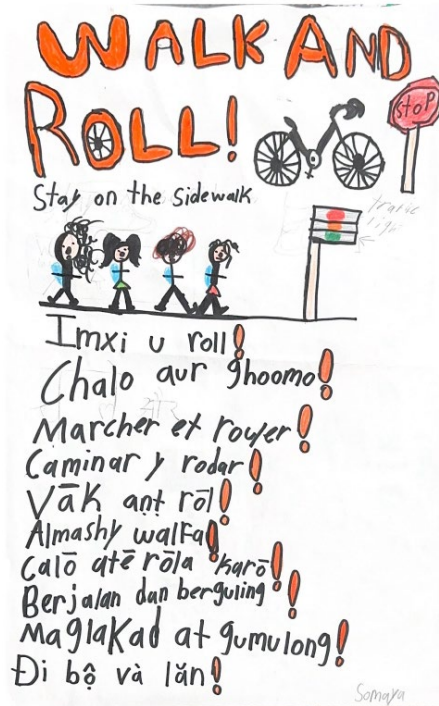 WALK AND
ROLL!
STOP
Stay on the sidewalk
trafic
light
Imxi u roll!
Chalo aur ghoomo!
Marcher et rouler!
Caminar y rodar!
Vāk aṇṭ rōl!
Almashy walfa!
Calō atē rōla karō!
Berjalan dan berguling!
Maglakad at gumulong!
Đi bộ và lăn!
Somaya